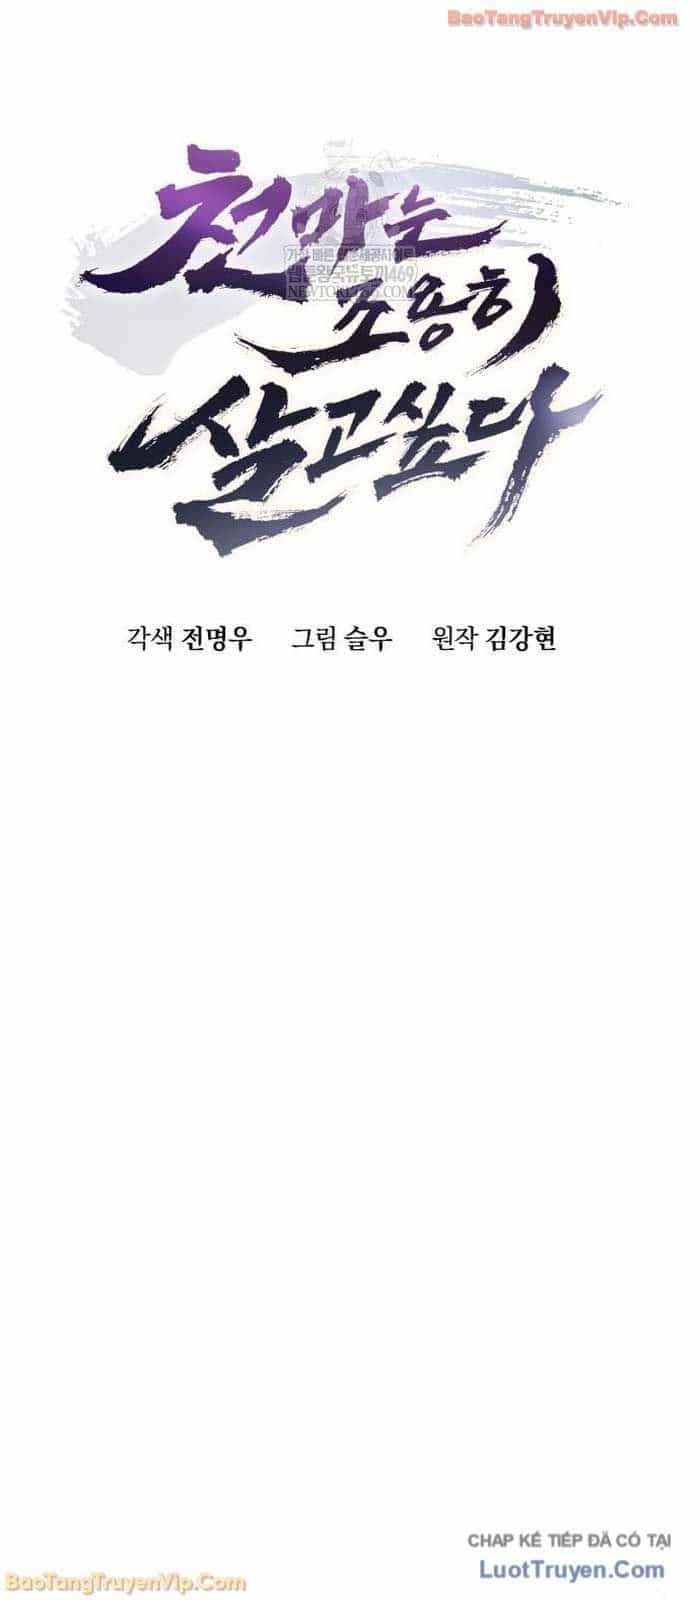 BaoTangTruyenVip.Com
천마는
조용히
살고싶다
각색 전명우 그림 슬우 원작 김강현
CHAP KẾ TIẾP ĐÃ CÓ TẠI
LuotTruyen.Com
BaoTangTruyenVip.Com